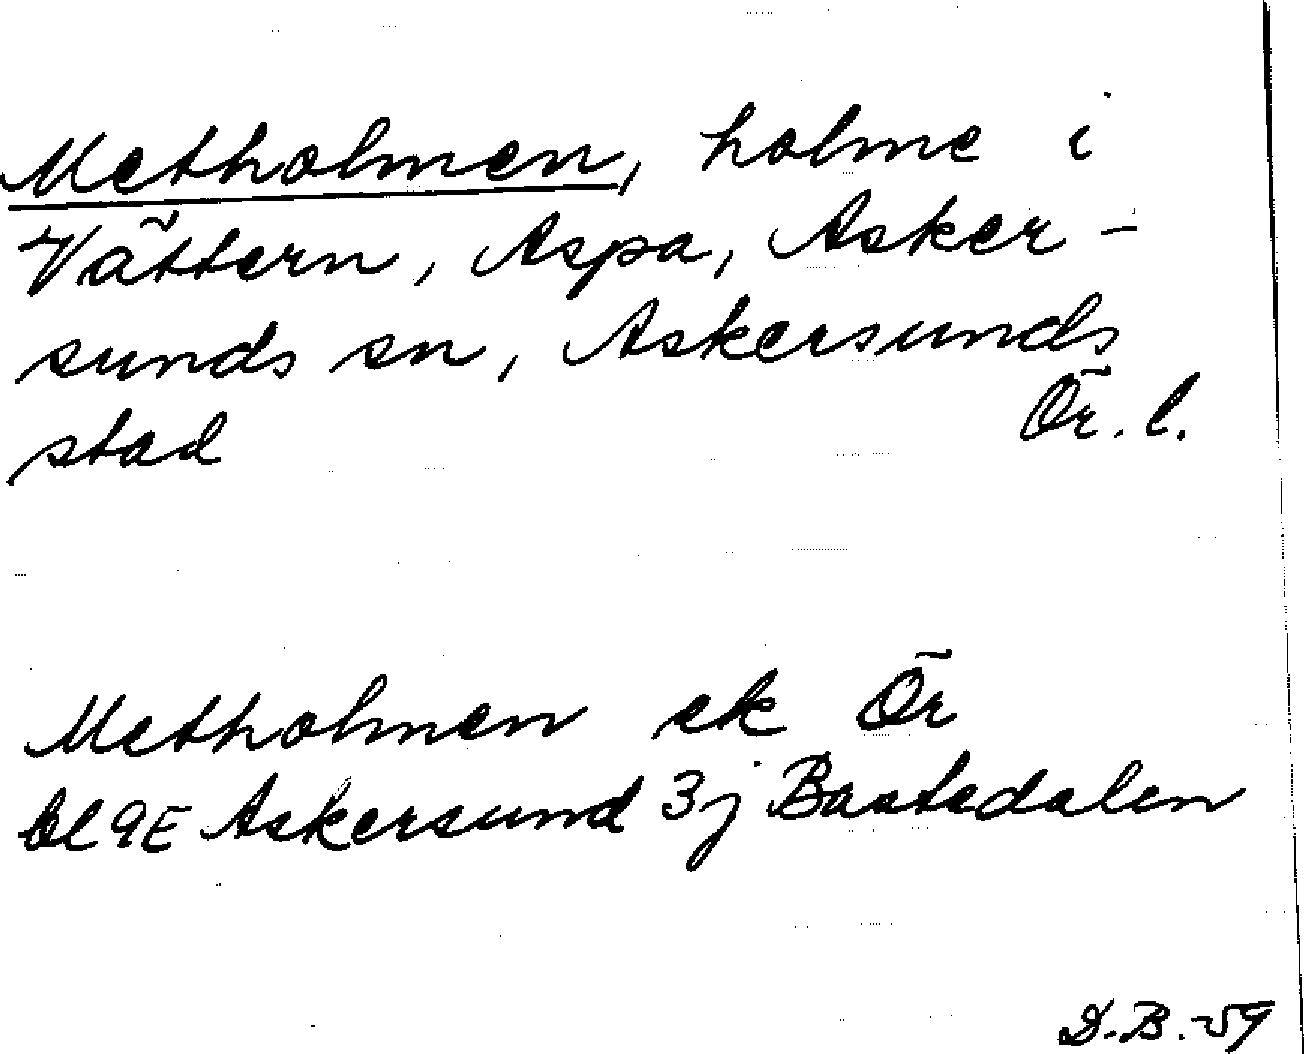 Metholmen, holme i
Vättern, Aspa, Asker-
sunds sn, Askersunds
stad Ör. l.
Metholmen ek Ör
bl 9E Askersund 3j Baatsdalen
D.B.-59